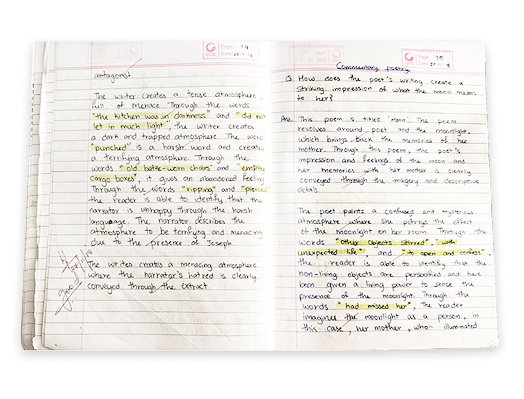 antagonist
The writer creates a tense atmosphere
full of menace through the words
"the kitchen was in darkness" and "did not
let in much light". The writer creates
a dark and trapped atmosphere. The word
"punched" is a harsh word and creates
a terrifying atmosphere. Through the
words "old battle-worn chairs" and "empty
cargo boxes", it gives an abandoned feeling
Through the words "ripping" and "pierced"
the reader is able to identify that the
narrator is unhappy through the harsh
language. The narrator describes the
atmosphere to be terrifying and menacing
due to the presence of Joseph.
The writer creates a menacing atmosphere
where the narrator's hatred is clearly
conveyed through the extract.
good
Page: 75
Commentary poetry
Q. How does the poet's writing create a
striking impression of what the moon means
to her?
Ans. This poem is titled Moon. The poem
revolves around poet and the moonlight,
which brings back the memories of her
mother. Through this poem, the poet's
impression and feelings of the moon and
her memories with her mother is clearly
conveyed through the imagery and descriptive
details.
The poet paints a confused and mysterious
atmosphere where she portrays the effect
of the moonlight on her room. Through the
words "other objects stirred", "with
unexpected life", and "to open and confess",
the reader is able to identify that the
non-living objects are personified and have
been given a living power to sense the
presence of the moonlight. Through the
words "had missed her", the reader
imagines the moonlight as a person, in
this case, her mother, who illuminated